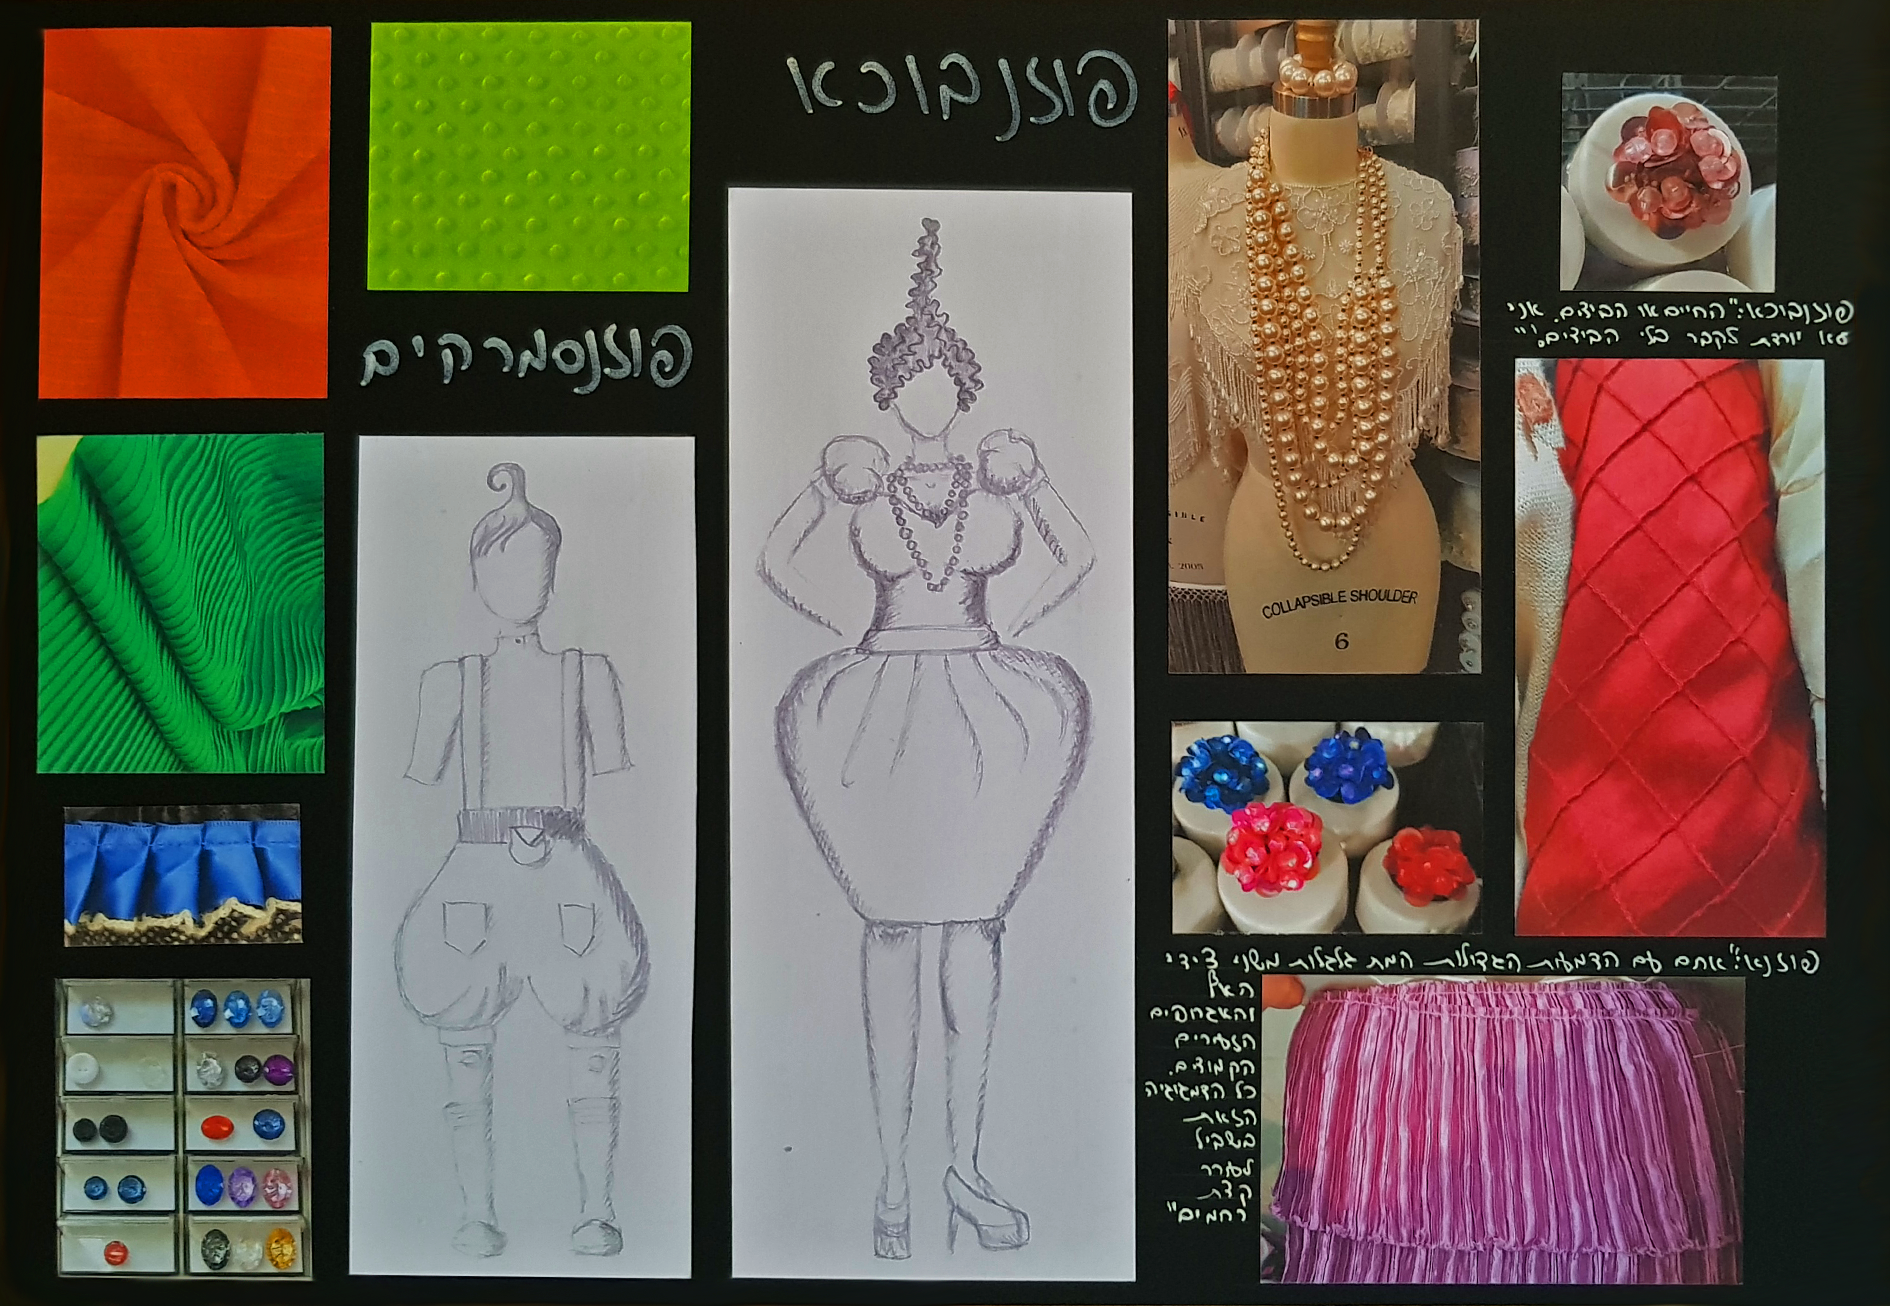 פוזנבוכא
פוזנסמרקים
פוזנבוכא:"החיים או הביצים. אני
לא יורדת לקבר בלי הביצים!"
COLLAPSIBLE SHOULDER
6
2005
פוזנא:"אתם עם הדמעות הגדולות המתגלגלות משני צידי
האף
והאגרופים
הזעירים
הקמוצים.
כל הדמגוגיה
הזאת
בשביל
לעורר
קצת
רחמים"